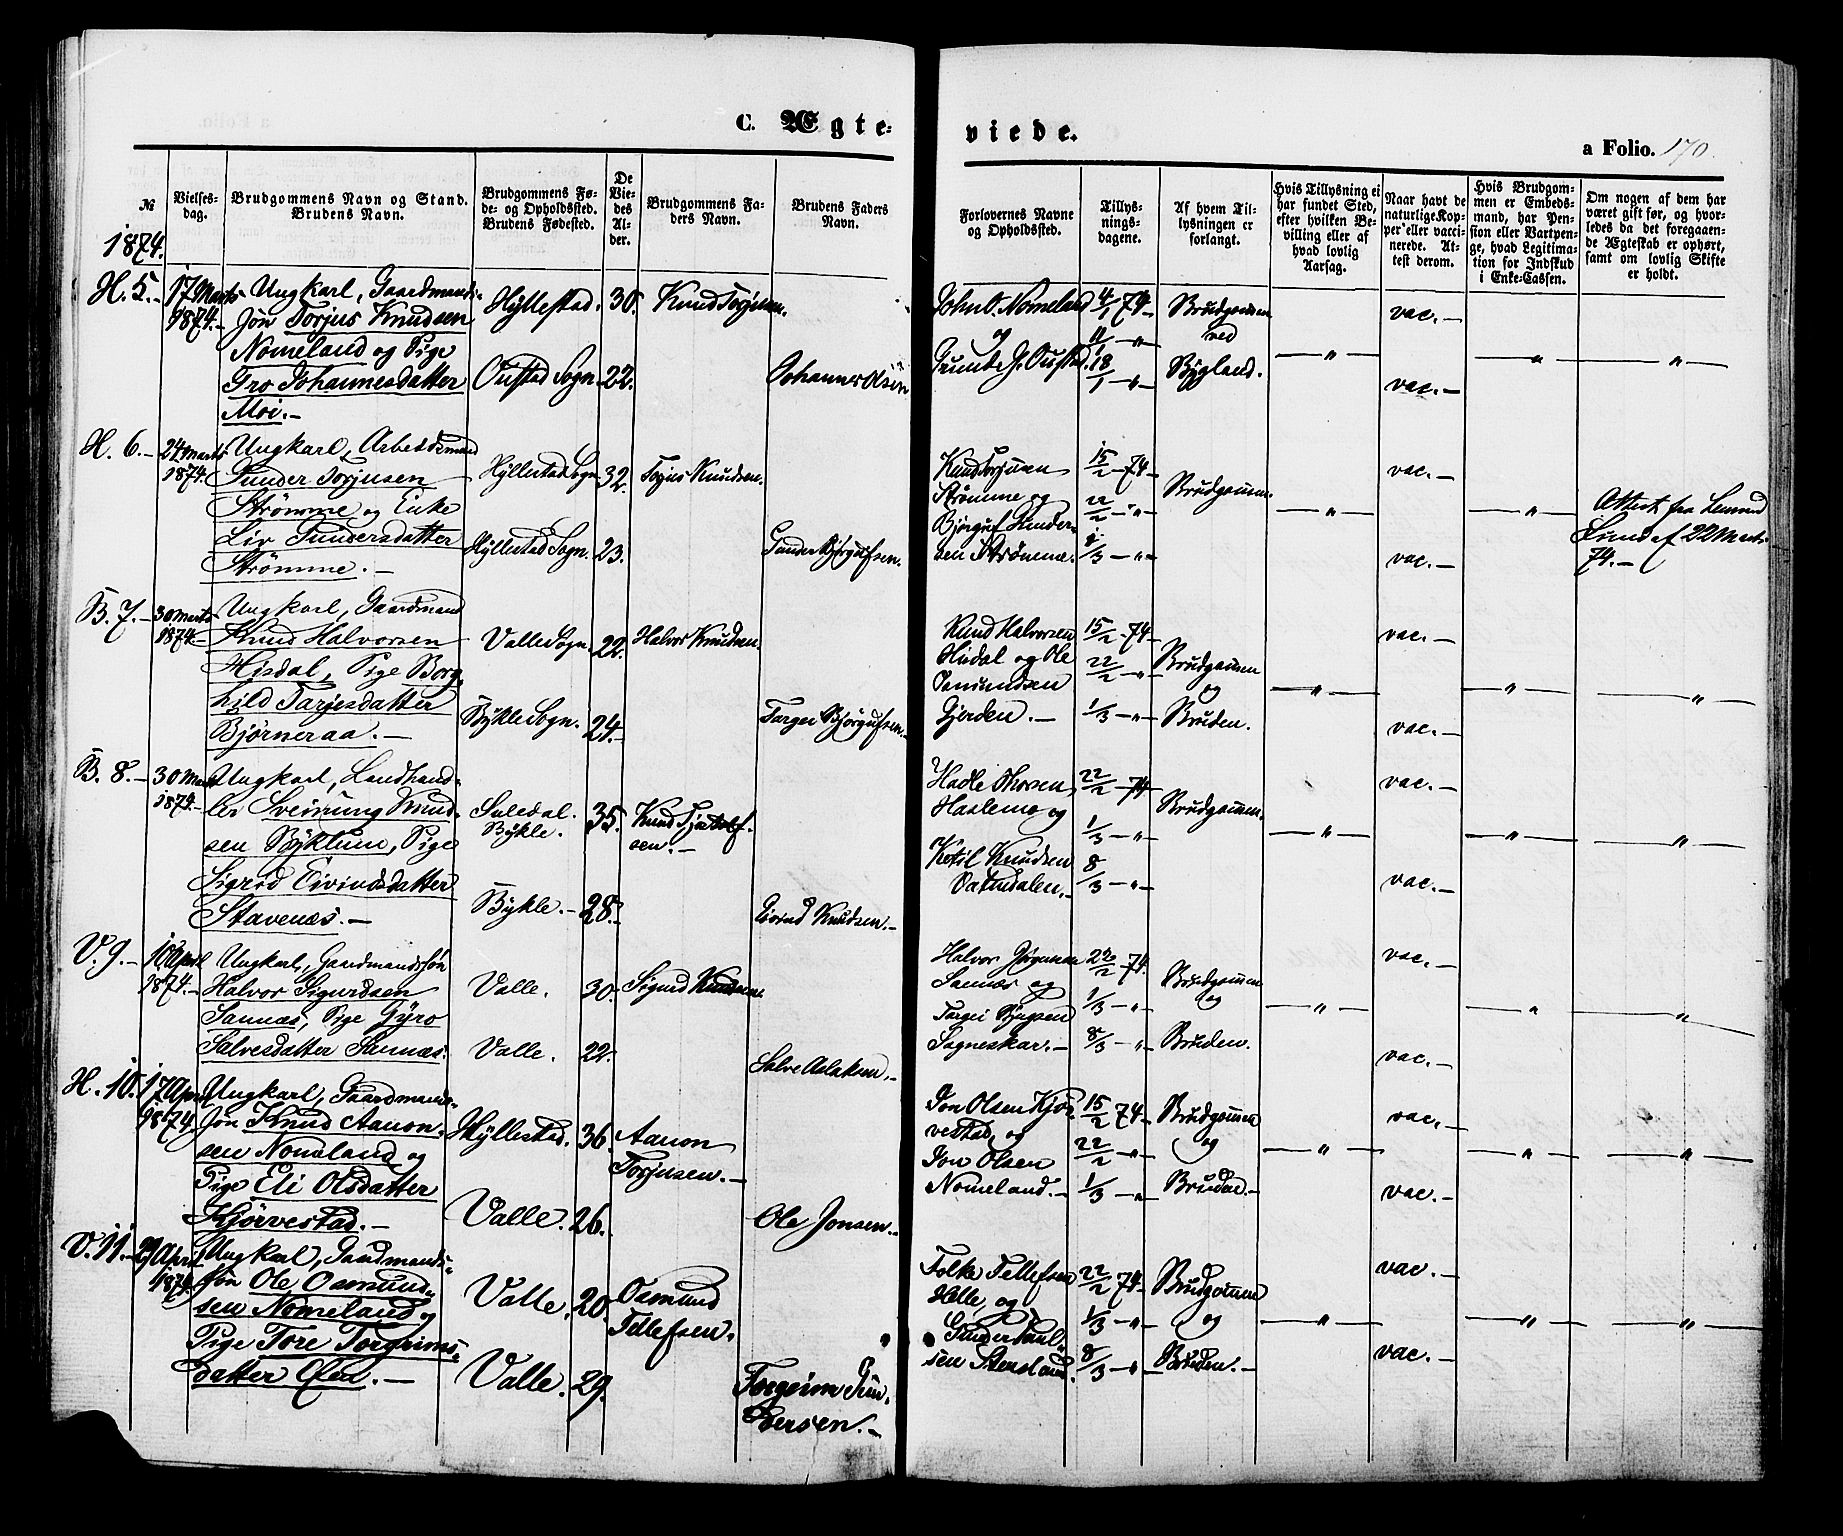 C. Ægte-
viede.
a Folio. 170.
№
Vielses-
dag.
Brudgommens Navn og Stand.
Brudens Navn.
Brudgommens Fø-
de- og Opholdssted.
Brudens Fødested.
De
Vie-
des
Al-
der.
Brudgommens Fa-
ders Navn.
Brudens Faders
Navn.
Forlovernes Navne
og Opholdssted.
Tillys-
nings-
dagene.
Af hvem Til-
lysningen er
forlangt.
Hvis Tillysning ei
har fundet Sted,
efter hvilken Be-
villing eller af
hvad lovlig
Aarsag.
Naar havt de
naturlige Kop-
per eller vacci-
nerede. At-
test derom.
Hvis Brudgom-
men er Embeds-
mand, har Pen-
sion eller Vartpen-
ge, hvad Legitima-
tion for Indskud
i Enke-Cassen.
Om nogen af dem har
været gift før, og hvor-
ledes da det foregaaen-
de Ægteskab er ophørt,
samt om lovlig Skifte
er holdt.
1874.
H. 5.-
17 Marts
1874.-
Ungkarl, Gaardmands-
søn Torjus Knudsen
Nomeland og Pige
Gro Johannesdatter
Moi.-
Hyllestad. 30. Knud Torjusen.
Oustad Sogn. 22. Johannes Olsen
John O. Nomeland
og
Gunde J. Oustad.
4/1 74-
11/1 -"-
18/1 -"-
Brudgommen
ved
Bygland.
vac.-
vac.-
H. 6.-
24 Marts
1874.
Ungkarl, Arbeidsmand
Gunder Torjusen
Strømme og Enke
Liv Gundersdatter
Strømme.-
Hyllestad Sogn 32. Torjus Knudsen.
Hyllestad Sogn. 23. Gunder Bjørgufsen.
Knud Torjusen
Strømme og
Bjørguf Gunder-
sen Strømme.
15/2 -74-
22/2 -"-
1/3 -"-
Brudgommen.
vac.-
vac.-
Attest fra Lensmand
Lund af 22 Marts
74.-
B. 7.-
30 Marts
1874.-
Ungkarl, Gaardmand
Knud Halvorsen
Hisdal, Pige Borg-
hild Tarjesdatter
Bjørneraa.-
Valle Sogn. 22. Halvor Knudsen.
Bykle Sogn. 24.- Targei Bjørgufsen.-
Knud Halvorsen
Hisdal og Ole
Osmundsen
Gjerden.-
15/2 -74-
22/2 -"-
1/3 -"-
Brudgommen
og
Bruden.
vac.-
vac.-
B. 8.-
30 Marts
1874.-
Ungkarl, Landhand-
ler Sveinung Knud-
sen Byklum, Pige
Sigrid Eivindsdatter
Stavenæs.-
Suledal.
Bykle.
35. Knud Tjostolf-
sen.-
Bykle.- 28.- Eivind Knudsen.-
Haslemo og
Ketil Knudsen
Vatndalen.-
22/2 -74-
1/3 -"-
8/3 -"-
Brudgommen.
vac.-
vac.-
V. 9.-
10 April
1874.-
Ungkarl, Gaardmandssøn
Halvor Sigurdsen
Sannæs, Pige Gyro
Salvesdatter Sannæs.
Valle. 30. Sigurd Knudsen.
Valle. 22. Salve Aslaksen.-
Sannæs og
Targei
22/2 74.
1/3 -"-
8/3 -"-
Brudgommen
og
Bruden.
vac.-
vac.-
H. 10.
17 April
1874
Ungkarl, Gaardmands-
søn Knud Aanon-
sen Nomeland og
Pige Eli Olsdatter
Kjørvestad.-
Hyllestad. 36. Aanon
Torjusen.-
Valle. 26. Ole Jonsen.-
Jon Olsen Kjør-
vestad og
Jon Olsen
Nomeland.-
15/2 74-
22/2 -"-
1/3 -"-
Brudgommen
og
Bruden.-
vac.-
vac.-
V. 11.-
April
1874.
Ungkarl, Gaardmands-
søn Ole Osmund-
sen Nomeland og
Pige Tore Torgrims-
datter
Valle. 20. Osmund
Tellefsen.
Valle. 29. Torgrim Gun-
dersen.-
Folke Tellefsen
Helle, og
Gunder Paul-
sen Stensland.
22/2 74-
1/3 -"-
8/3 -"-
Brudgommen
og
Bruden.-
vac.-
vac.-